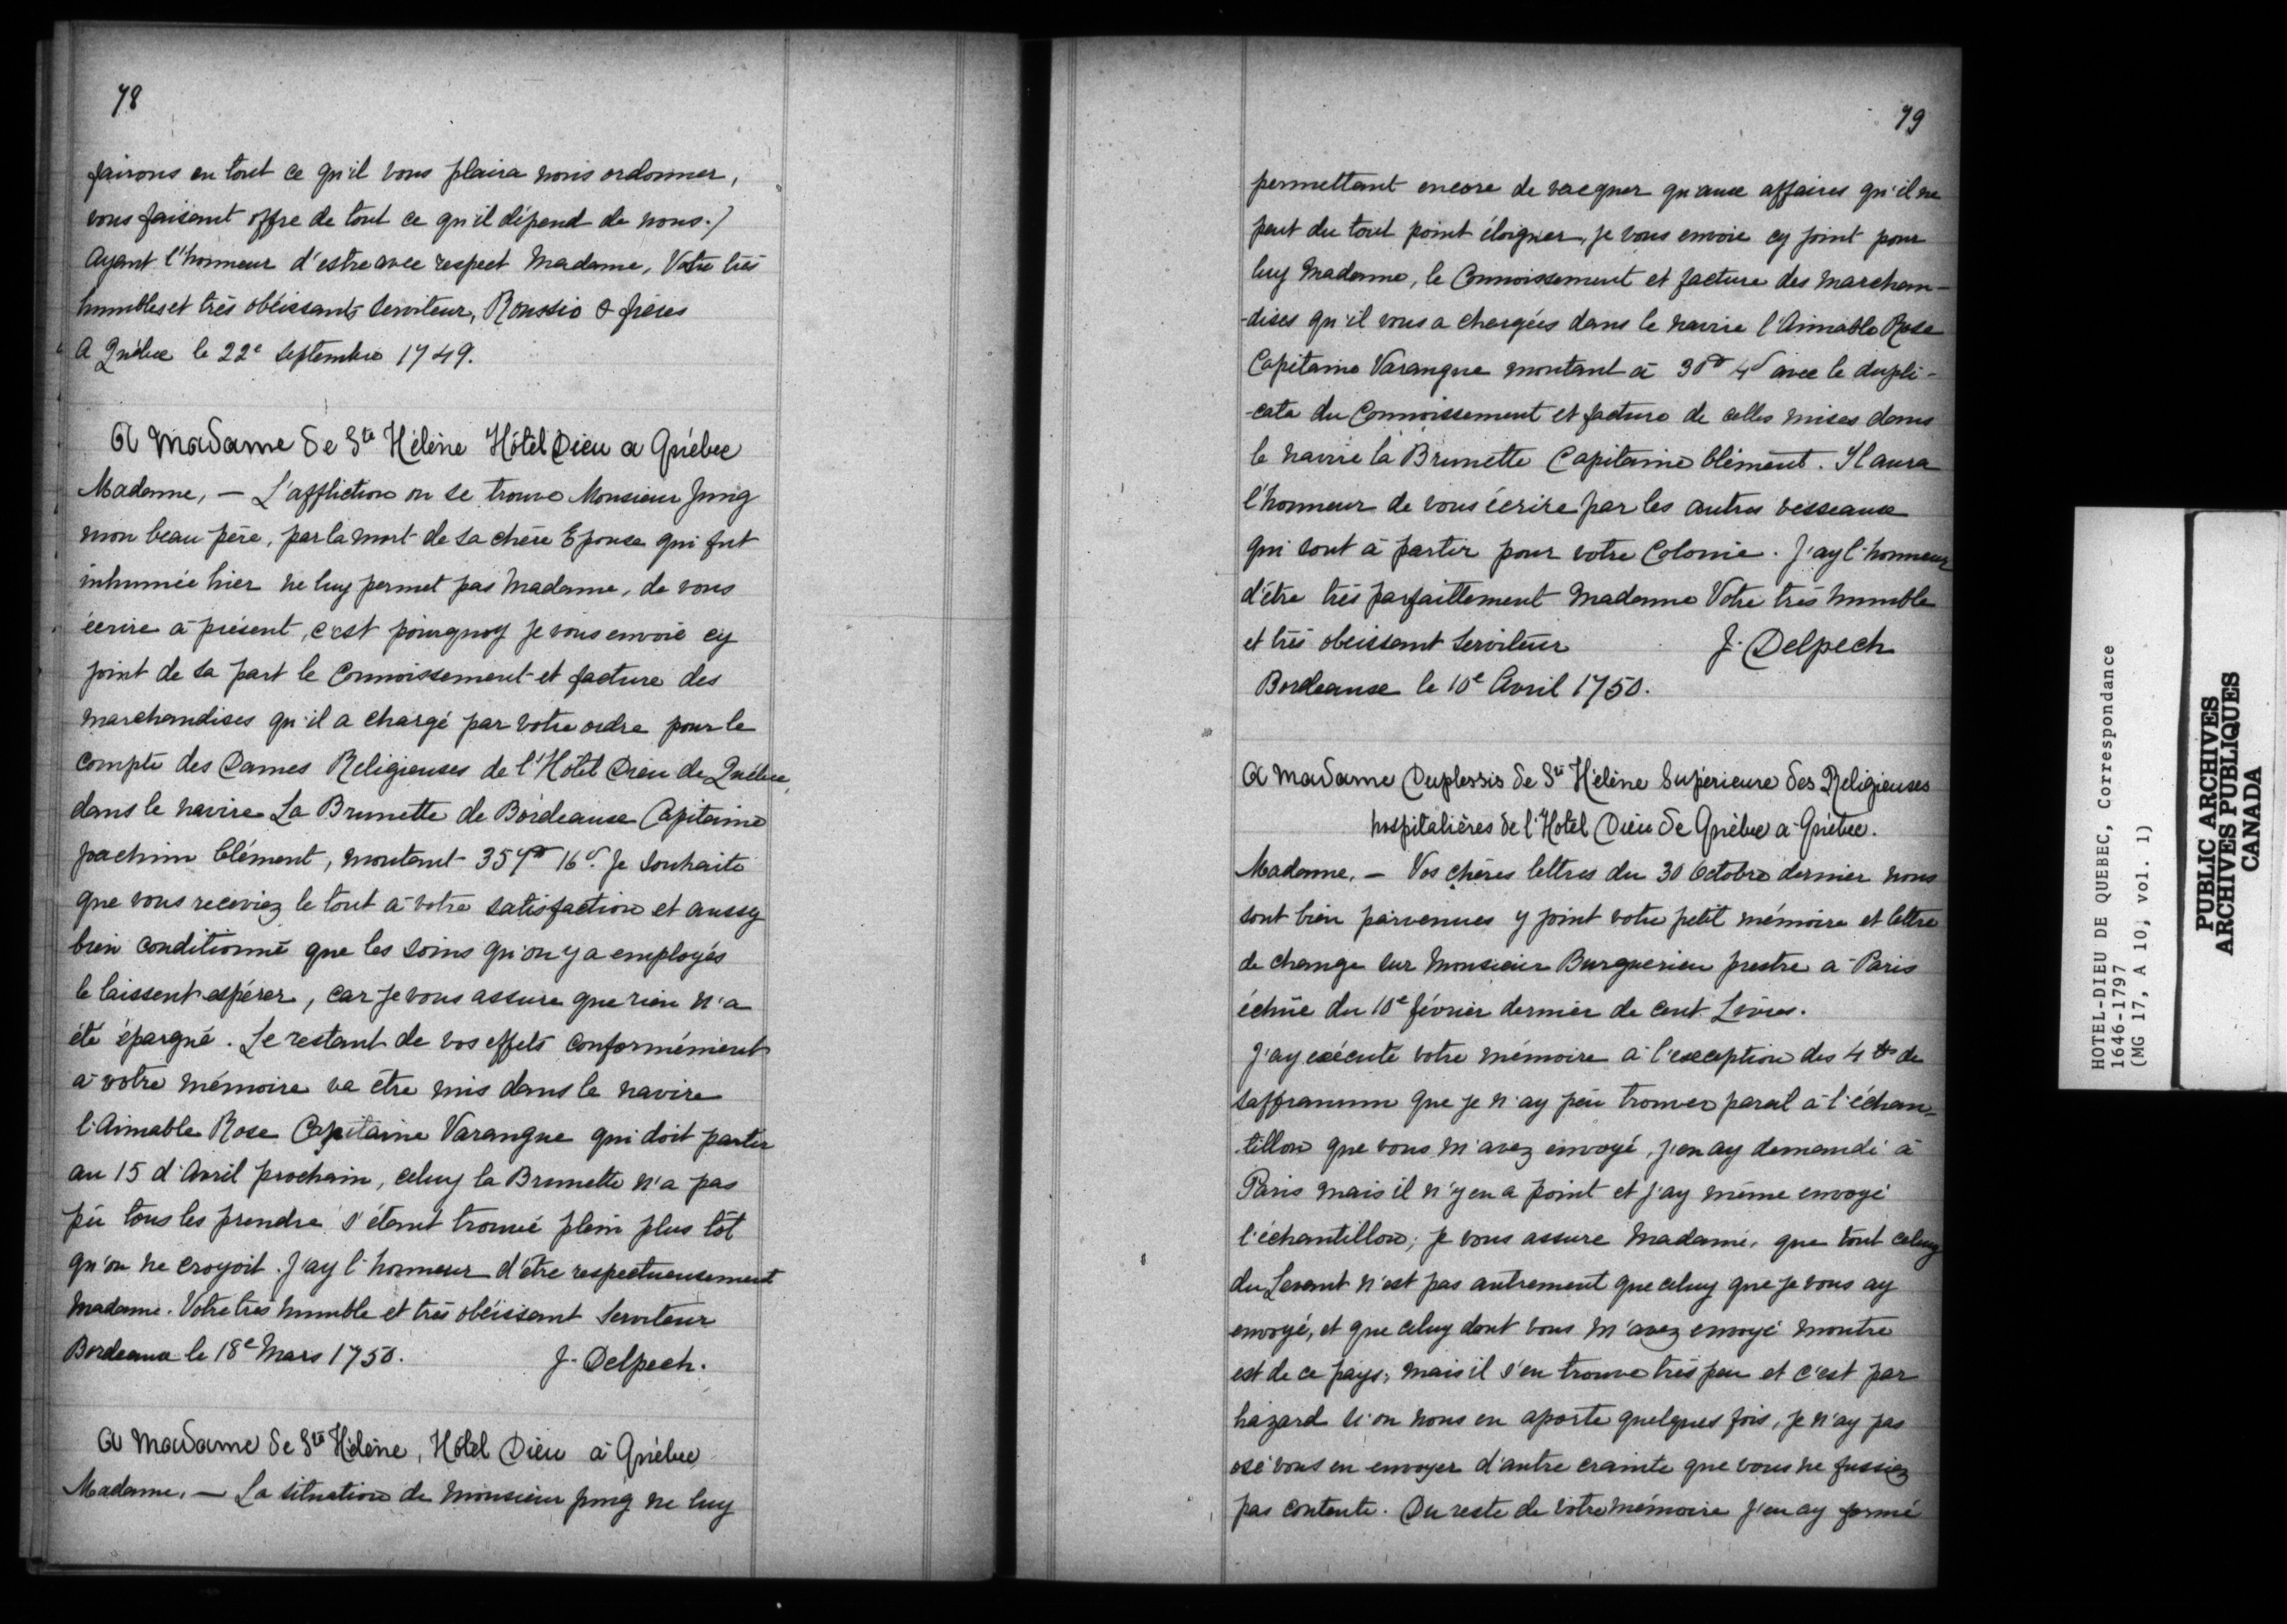 78
fairons en tout ce qu'il vous plaira nous ordonner,
vous faisant offre de tout ce qu'il dépend de nous./
Ayant l'honneur d'estre avec respect Madame, Votre très
humbles et très obéissants serviteur, Roussio & frères
A Québec le 22e Septembre 1749.
A Madame de Ste Hélène Hôtel Dieu a Québec
Madame, — L'affliction ou se trouve Monsieur Jung
mon beau père, par la mort de sa chère Epouse qui fut
inhumée hier ne luy permet pas Madame, de vous
écrire à présent, c'est pourquoy je vous envoie cy
joint de sa part le Connoissement et facture des
marchandises qu'il a chargé par votre ordre pour le
compte des Dames Religieuses de l'Hôtel Dieu de Québec,
dans le navire La Brunette de Bordeaux Capitaine
joachim Clément, montant 357# 16s. Je souhaite
que vous receviez le tout à votre satisfaction et aussy
bien conditionné que les soins qu'on y a employés
le laissent espérer, car je vous assure que rien n'a
été épargné. Le restant de vos effets conformément
à votre mémoire va être mis dans le navire
l'Aimable Rose Capitaine Varangue qui doit partir
au 15 d'Avril prochain, celuy la Brunette n'a pas
pû tous les prendre s'étant trouvé plein plus tôt
qu'on ne croyoit. J'ay l'honneur d'être respectueusement
Madame. Votre très humble et très obéissant Serviteur
Bordeaux le 18e Mars 1750. J. Delpech.
A Madame de Ste Hélène, Hôtel Dieu à Québec
Madame. — La situation de Monsieur Jung ne luy
79
permettant encore de vacquer qu'aux affaires qu'il ne
peut du tout point éloigner, je vous envoie cy joint pour
luy Madame, le Connoissement et facture des marchan-
-dises qu'il vous a chargées dans le navire l'Aimable Rose
Capitaine Varangue montant à 30# 4s avec le dupli-
-cata du Connoissement et facture de celles mises dans
le navire la Brunette Capitaine Clément. Il aura
l'honneur de vous écrire par les autres vesseaux
qui sont à partir pour votre Colonie. J'ay l'honneur
d'être très parfaittement Madame Votre très humble
et très obeissant Serviteur J. Delpech
Bordeaux le 10e Avril 1750.
A Madame Duplessis de Ste Hélène Supérieure des Religieuses
hospitalières de l'Hotel Dieu de Québec a Québec.
Madame. — Vos chères lettres du 30 Octobre dernier nous
sont bien parvenues y joint votre petit mémoire et lettre
de change sur Monsieur Burguerieu prestre a Paris
échûe du 10e février dernier de cent Livres.
J'ay exécuté votre mémoire à l'exception des 4 ℔ de
saffranum que je n'ay pëu trouver pareil à l'échan-
tillon que vous m'avez envoyé, j'en ay demandé à
Paris mais il n'y en a point et j'ay même envoyé
l'échantillon; je vous assure Madame, que tout celuy
du Levant n'est pas autrement que celuy que je vous ay
envoyé, et que celuy dont vous m'avez envoyé montre
est de ce pays; mais il s'en trouve très peu et c'est par
hazard si on nous en aporte quelques fois, je n'ay pas
osé vous en envoyer d'autre crainte que vous ne fussiez
pas contente. Du reste de votre mémoire j'en ay formé
HOTEL-DIEU DE QUEBEC, Correspondance
1646-1797
(MG 17, A 10, vol. 1)
PUBLIC ARCHIVES
ARCHIVES PUBLIQUES
CANADA